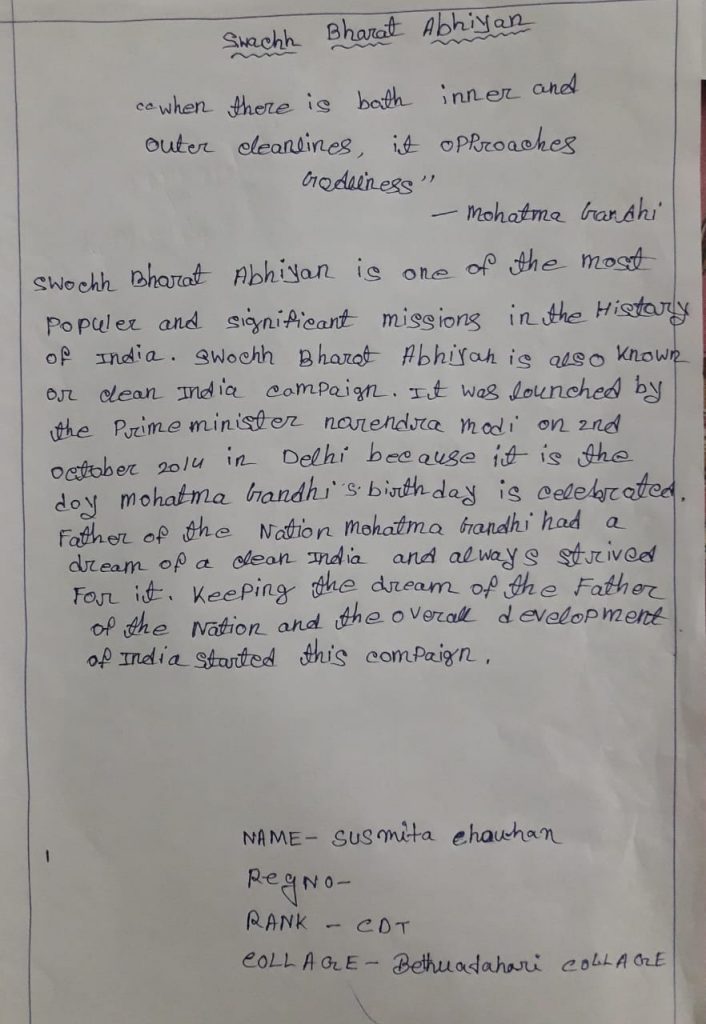 Swachh Bharat Abhiyan
"when there is both inner and
outer cleanlines, it opproaches
Godliness"
- Mohatma Gandhi
Swochh Bharat Abhiyan is one of the most
Populer and significant missions in the History
of India. Swochh Bharat Abhiyan is also Known
or clean India campaign. It was lounched by
the Prime minister narendra modi on 2nd
october 2014 in Delhi because it is the
doy mohatma Gandhi's birth day is celebrated.
Father of the Nation Mohatma Gandhi had a
dream of a clean India and always strived
For it. Keeping the dream of the Father
of the Nation and the overall development
of India started this compaign.
NAME- SUSmita Chauhan
Reg NO-
RANK - CDT
COLLAGE - Bethuadahari COLLAGE